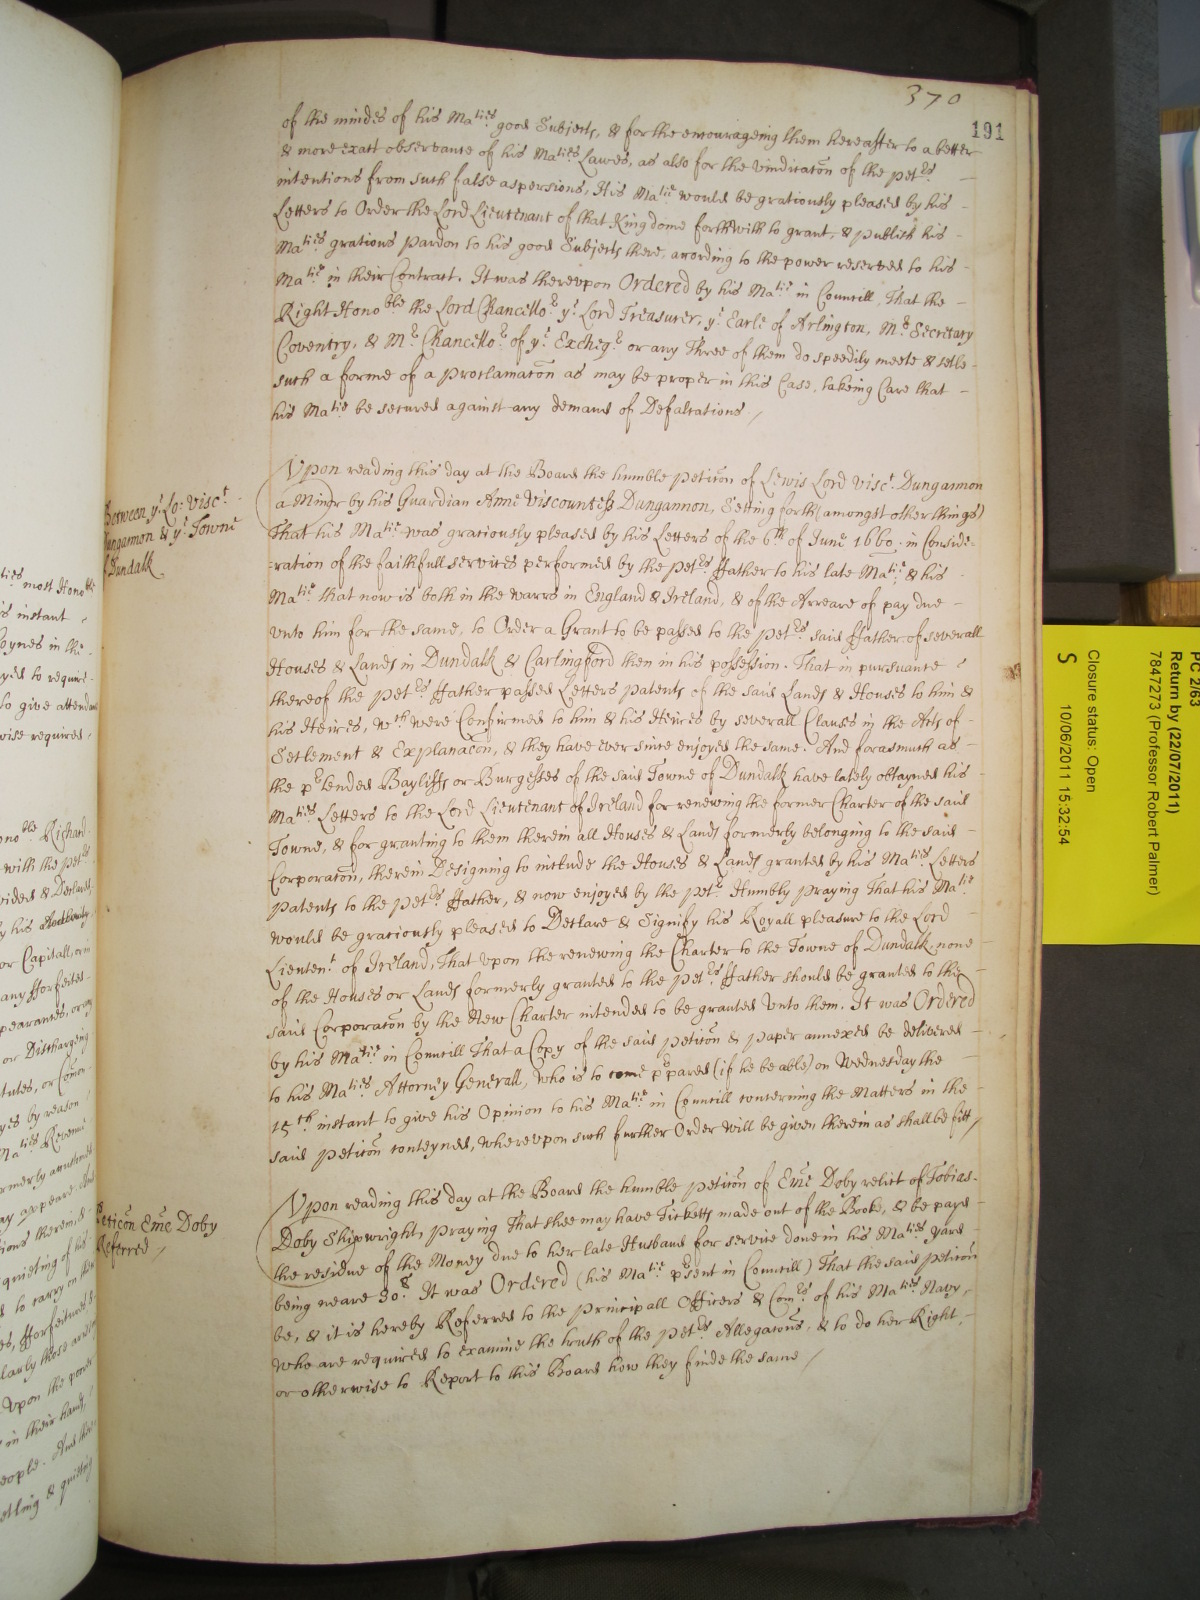 370
191
of the mindes of his Maties good Subjects, & for the encourageing them hereafter to a better
& more exact observance of his Maties Lawes, as also for the vindicacon of the petrs
intentions from such false aspersions, His Matie would be gratiously pleased by his
Letters to Order the Lord Lieutenant of that Kingdome forthwith to grant, & publish his
Maties gratious pardon to his good Subjects there, according to the power reserved to his
Matie in their Contract. It was therevpon Ordered by his Matie in Councill, That the
Right Honoble the Lord Chancellor, ye Lord Treasurer, ye Earle of Arlington, Mr Secretary
Coventry, & Mr Chancellor of ye Excheqr or any Three of them do speedily meete & setle
such a forme of a Proclamacon as may be proper in this Case, takeing Care that
his Matie be secured against any demand of Defalcations /
Between ye Lo: Visct
Dungannon & ye Towne
of Dundalk
Vpon reading this day at the Board the humble Peticon of Lewis Lord Visct Dungannon
a Minor by his Guardian Anne Viscountess Dungannon, Setting forth (amongst other things)
That his Matie was gratiously pleased by his Letters of the 6th of June 1660. in Conside=
=ration of the faithfull services performed by the petrs ffather to his late Matie & his
Matie that now is both in the warrs in England & Ireland, & of the Arreare of pay due
vnto him for the same, to Order a Grant to be passed to the petrs said ffather of severall
Houses & Lands in Dundalk & Carlingford then in his possession. That in pursuance
thereof the petrs ffather passed Letters Patents of the said Lands & Houses to him &
his Heires, wch were Confirmed to him & his Heires by severall Clauses in the Acts of
Setlement & Explanacon, & they have ever since enjoyed the same. And forasmuch as
the prtended Bayliffs or Burgesses of the said Towne of Dundalk have lately obtayned his
Maties Letters to the Lord Lieutenant of Ireland for renewing the former Charter of the said
Towne, & for granting to them therein all Houses & Lands formerly belonging to the said
Corporacon, therein Designing to include the Houses & Lands granted by his Maties Letters
Patents to the petrs ffather, & now enjoyed by the petr. Humbly praying That his Matie
would be graciously pleased to Declare & Signify his Royall pleasure to the Lord
Lieutent of Ireland, That vpon the renewing the Charter to the Towne of Dundalk, none
of the Houses or Lands formerly granted to the petrs ffather should be granted to the
said Corporacon by the New Charter intended to be granted vnto them. It was Ordered
by his Matie in Councill That a Copy of the said Peticon & paper annexed be delivered
to his Maties Attorney Generall, who is to come prpared (if he be able) on Wednesday the
15th instant to give his Opinion to his Matie in Councill concerning the Matters in the
said Peticon conteyned, wherevpon such further Order will be given therein as shall be fitt /
Peticon Eme Doby
Referred /
Vpon reading this day at the Board the humble Peticon of Eme Doby relict of Tobias
Doby Shipwright, praying That shee may have Ticketts made out of the Booke, & be payd
the residue of the Money due to her late Husband for service done in his Maties Yard
being neare 30£. It was Ordered (his Matie prsent in Councill) That the said Peticon
be, & it is hereby Referred to the Principall Officers & Comrs of his Maties Navy,
who are required to examine the truth of the petrs Allegacons, & to do her Right,
or otherwise to Report to this Board how they finde the same /
ties most Honoble
instant
to give attend
wise required,
onoble Richard
with the petrs
or Capitall, or in
any fforfeited
or Discharging
yes by reason
Maties Revenue
quieting of his
to carry on the
vpon the power
in their hands,
PC 2/63
Return by (22/07/2011)
7847273 (Professor Robert Palmer)
Closure status: Open
S 10/06/2011 15:32:54